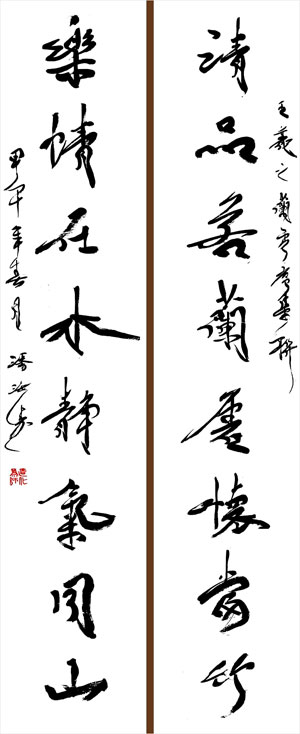 王羲之蘭亭序集聯
清品若蘭虛懷當竹
樂情在水靜氣同山
甲午年春月